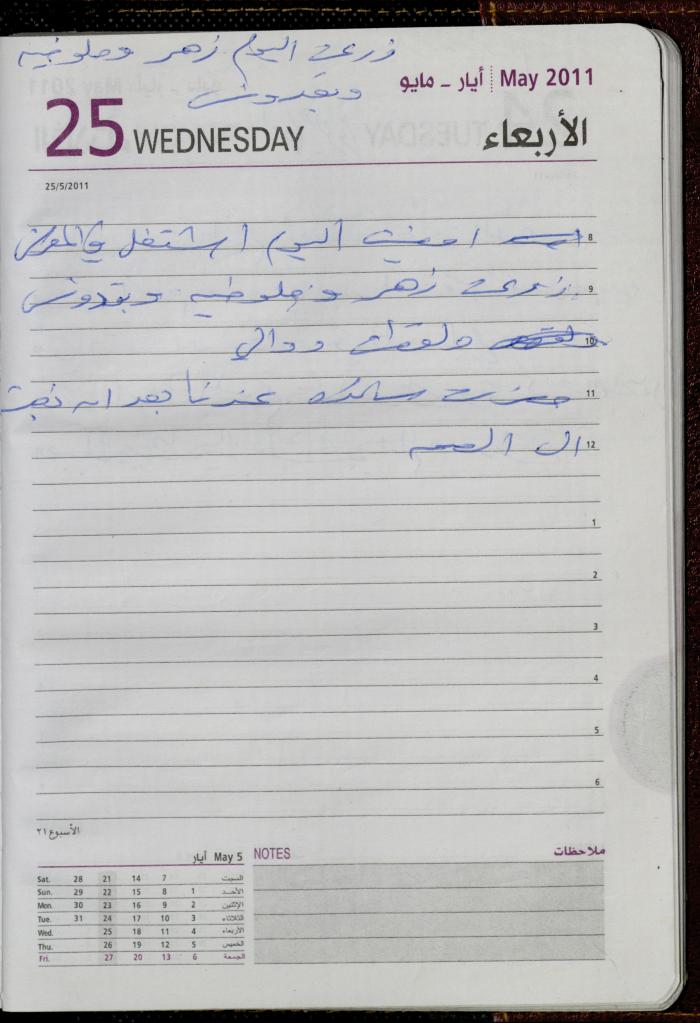 زرعت اليوم زهر وملوخية
وبقدونس
أيار - مايو May 2011
25 WEDNESDAY الأربعاء
25/5/2011
8 امضيت اليوم اشتغل في
9 زرعت زهر وملوخيه وبقدونس
10 ولقطت دوالي
11 عندنا بعد ان
12 ال
1
2
3
4
5
6
الأسبوع ٢١
May 5 أيار
Sat. 28 21 14 7 السبت
Sun. 29 22 15 8 1 الأحد
Mon. 30 23 16 9 2 الإثنين
Tue. 31 24 17 10 3 الثلاثاء
Wed. 25 18 11 4 الأربعاء
Thu. 26 19 12 5 الخميس
Fri. 27 20 13 6 الجمعة
NOTES ملاحظات